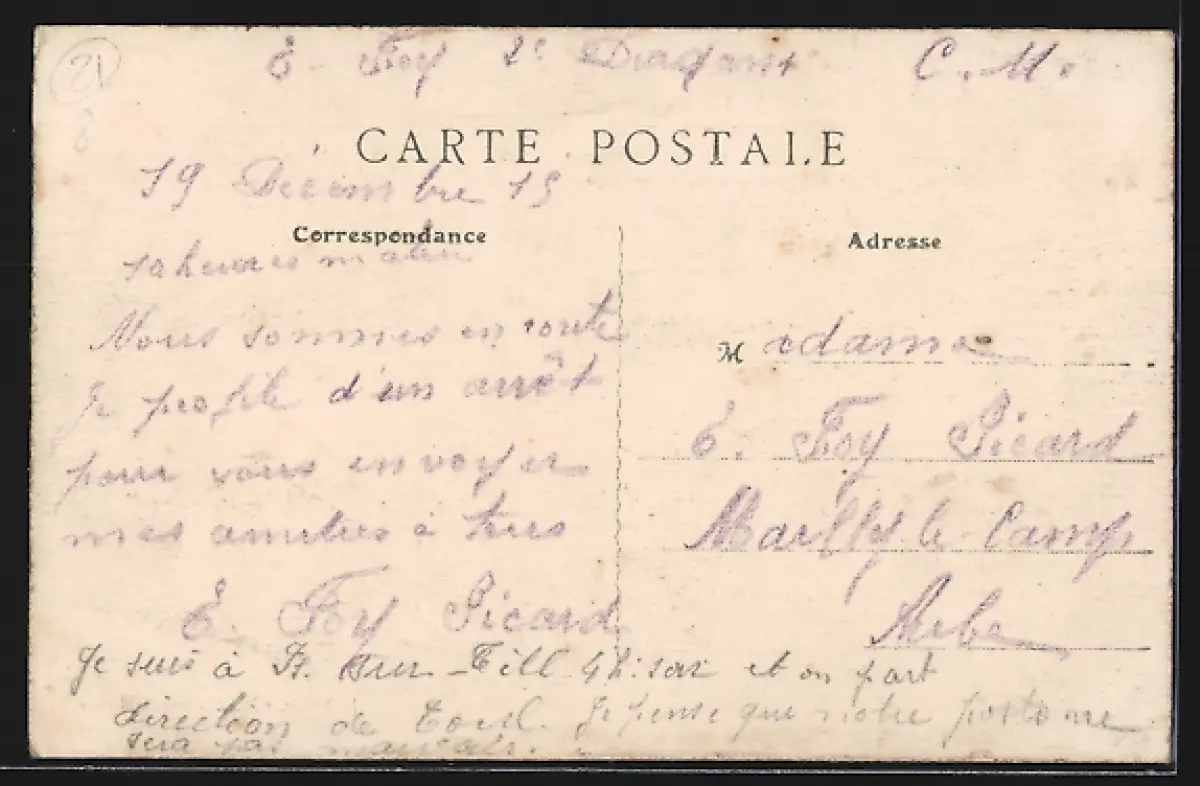 21
8
E. Foy 2e Dragons C.M.
CARTE POSTALE
19 Décembre 15
Correspondance
Adresse
10 heures matin
Nous sommes en route
Je profite d'un arrêt
pour vous envoyer
mes amitiés à tous
E. Foy Picard
Madame
E. Foy Picard
Mailly le Camp
Aube
Je suis à Is. sur-Till 4h. soir et on part
direction de Toul. Je pense que notre poste ne
sera pas mauvais.